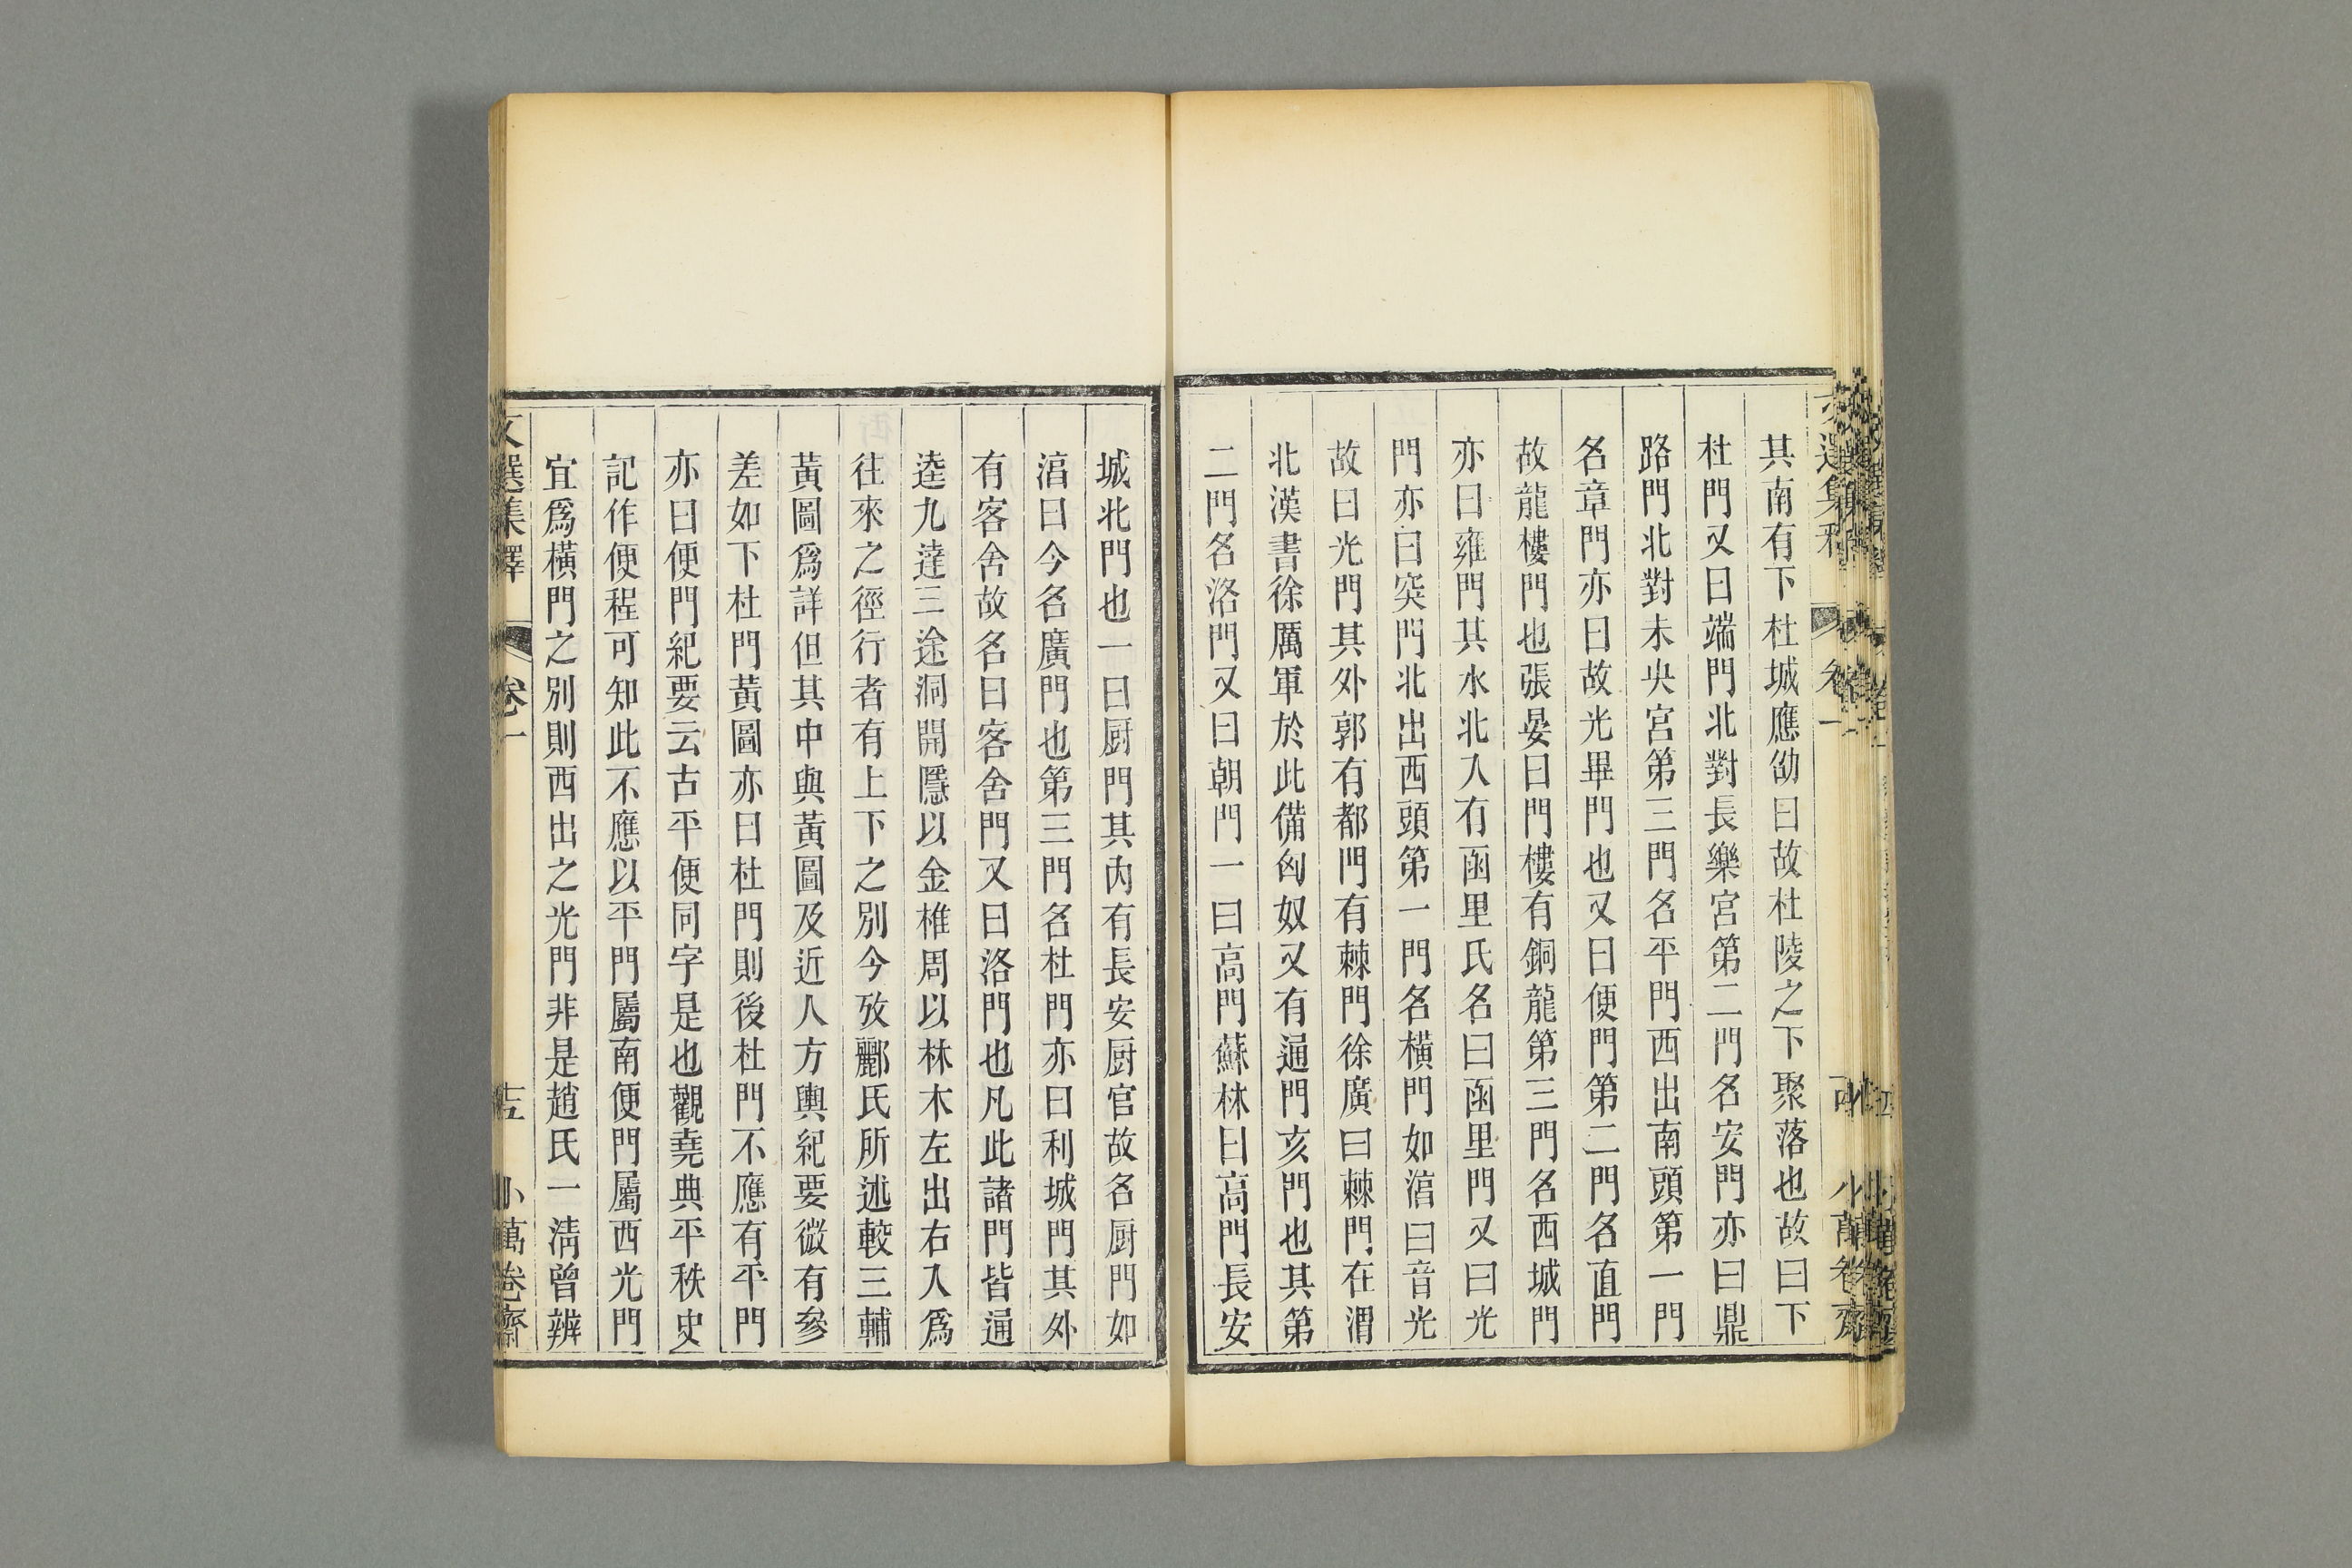 其南有下杜城應劭曰故杜陵之下聚落也故曰下
杜門又曰端門北對長樂宮第二門名安門亦曰鼎
路門北對未央宮第三門名平門西出南頭第一門
名章門亦曰故光畢門也又曰便門第二門名直門
故龍樓門也張晏曰門樓有銅龍第三門名西城門
亦曰雍門其水北入有函里氏名曰函里門又曰光
門亦曰突門北出西頭第一門名橫門如湻曰音光
故曰光門其外郭有都門有棘門徐廣曰棘門在渭
北漢書徐厲軍於此備匈奴又有通門亥門也其第
二門名洛門又曰朝門一曰高門蘇林曰高門長安
城北門也一曰厨門其內有長安厨官故名厨門如
湻曰今名廣門也第三門名杜門亦曰利城門其外
有客舍故名曰客舍門又曰洛門也凡此諸門皆通
逵九達三途洞開隱以金椎周以林木左出右入爲
往來之徑行者有上下之別今攷酈氏所述較三輔
黃圖爲詳但其中與黃圖及近人方輿紀要微有參
差如下杜門黃圖亦曰杜門則後杜門不應有平門
亦曰便門紀要云古平便同字是也觀堯典平秩史
記作便程可知此不應以平門屬南便門屬西光門
宜爲橫門之別則西出之光門非是趙氏一淸曾辨
文選集釋 卷一 十五 小萬卷齋